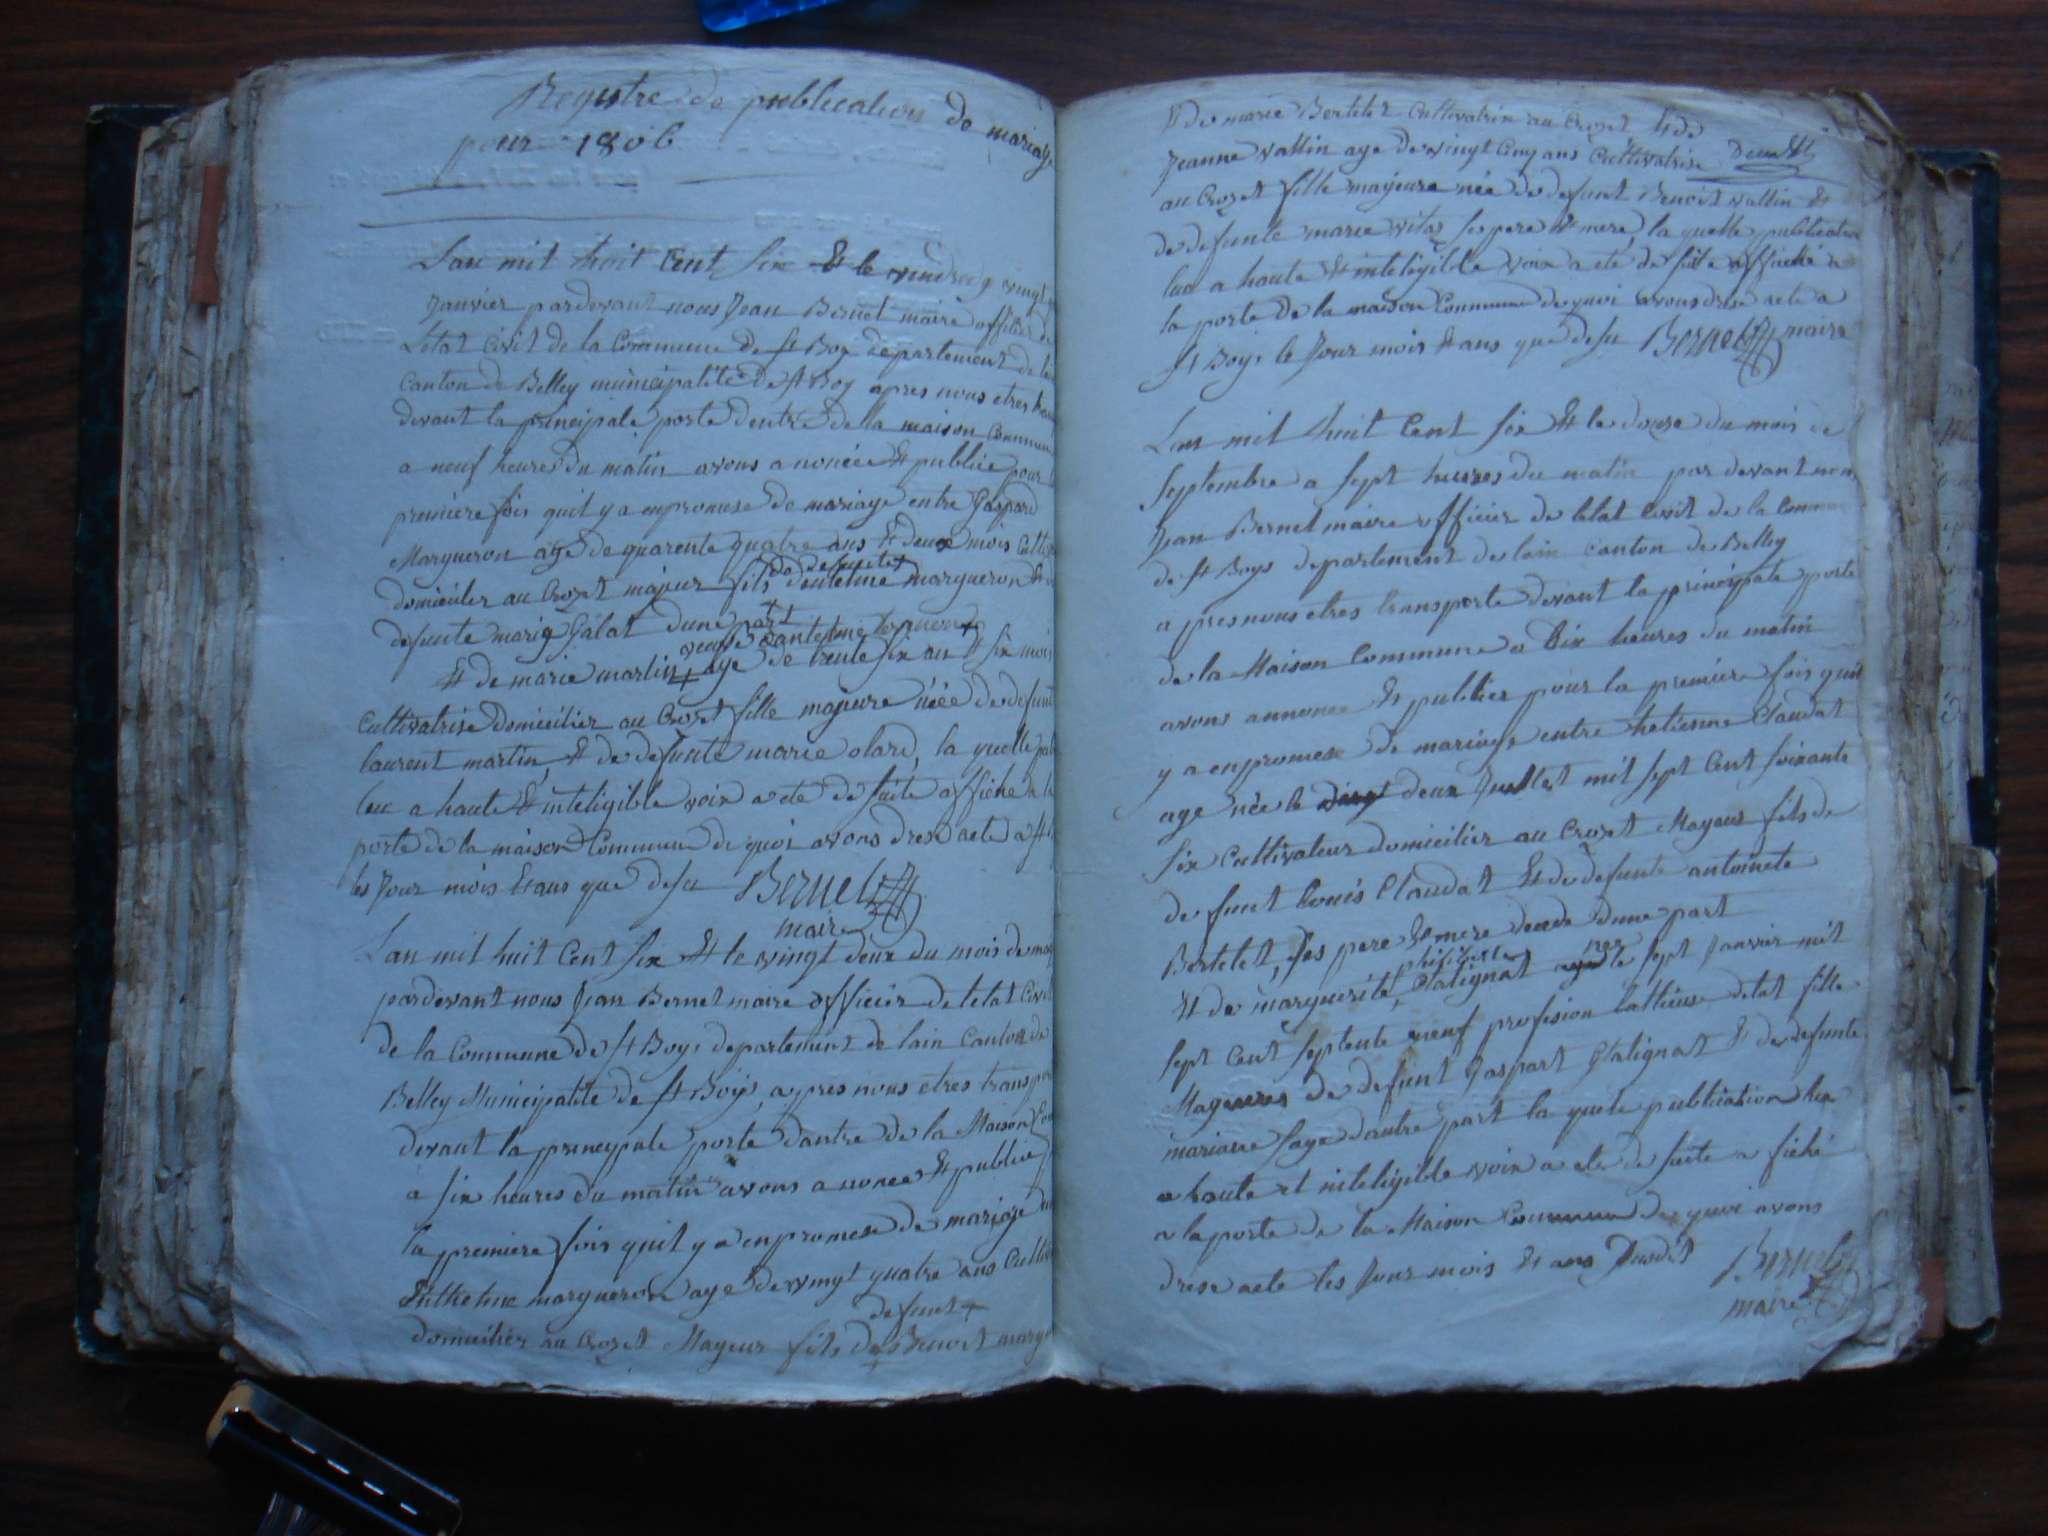 Registre de publication de mariage
pour 1806
Lan mil huit Cent six & le vingt
Janvier pardevant nous Jean Bernet maire officier de
Letat Civil de la Commune de St Boy departement de lain
Canton de Belley municipalité de St Boy apres nous etres
devant la principale porte dentré de la maison Commune
a neuf heures du matin avons anoncée & publiée pour
premiere fois quil y a enpromese de mariage entre Gaspard
Margueron age de quarente quatre ans & deux mois
domicilier au Crozet majeur fils de defunt entelme margueron &
defunte marie Galat dune part
& de marie martin veuve dantelme age de trente six an & six mois
Cultivatrise domicilier au Crozet fille majeure née de defunt
laurent martin, & de defunte marie olard, la quelle
lue a haute & inteligible voix a ete de suite affiche a la
porte de la maison Commune de quoi avons dresé acte a St
les Jour mois & ans que desu Bernet
maire
Lan mil huit Cent six & le vingt deux du mois de
pardevant nous Jean Bernet maire officier de letat Civil
de la Commune de St Boys departement de lain Canton de
Belley Municipalité de St Boys, apres nous etres
devant la principale porte dantre de la Maison
a six heures du matin avons anoncé & publié
la premiere fois quil y a enpromese de mariage
Enthelme margueron age de vingt quatre ans
domicilier au Crozet Mageur fils de defunt Benoit
& de marie Bertelet Cultivatrix au Crozet & de
Jeanne vallin age de vingt Cinq ans Cultivatrise
au Crozet fille majeure née de defunt Benoit vallin &
de defunte marie vitoz ses pere & mere, la quelle publication
lue a haute & inteligible voix a ete de suite affiché a
la porte de la maison Commune de quoi avons dresé acte a
St Boys le Jour mois & ans que desu Bernet maire
Lan mil huit Cent six & le douze du mois de
Septembre a sept heures du matin par devant nous
Jean Bernet maire officier de letat Civil de la Commune
de St Boys departement de lain Canton de Belley
apres nous etres transporte devant la principale porte
de la Maison Commune a Dix heures du matin
avons annonce & publier pour la premiere fois quil
y a enpromese de mariage entre hetienne Claudat
age née le deux Juillet mil sept Cent soixante
six Cultivateur domicilier au Crozet Mayeur fils de
defunt Louis Claudat & de defunte antoinete
Bertelet, ses pere & mere dune part
& de marguerite philiberte Glatignat nee le sept Janvier mil
sept Cent septente neuf profesion tallieuse detat fille
Mageures de defunt Gaspart Glatignat & de defunte
mariane sage dautre part la quele publication lue
a haute et inteligible voix a ete de suite afiché
a la porte de la Maison Commune de quoi avons
drese acte les Jour mois & ans susdit Bernet
maire